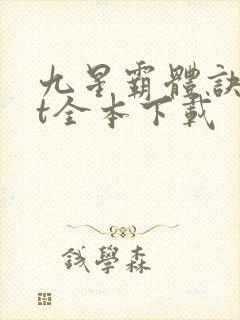 九星霸體訣
t全本下載
錢學森